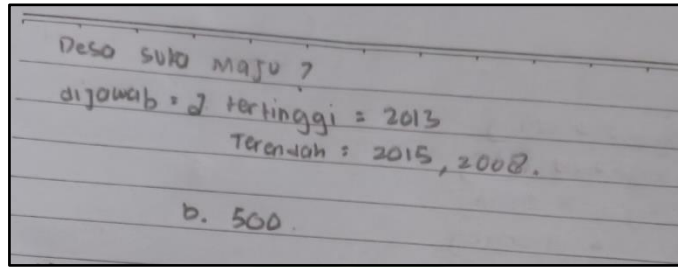 Desa suko maju ?
dijawab = a tertinggi = 2013
Terendah : 2015, 2008.
b. 500.